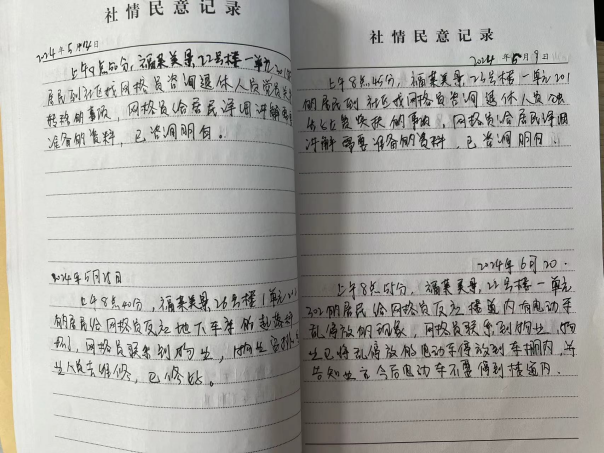 社情民意记录
2024年5月14日
上午9点50分，福莱美景22号楼一单元201
居民到社区找网格员咨询退休人员党员关系
转移的事项，网格员给居民详细讲解需要
准备的资料，已咨询明白。
2024年5月28日
上午8点40分，福莱美景26号楼1单元202
的居民给网格员反应地下车库的
网格员联系到物业，物业安排
人员去维修，已修好。
社情民意记录
2024年5月9日
上午8点45分，福莱美景26号楼一单元201
的居民到社区找网格员咨询退休人员
的事项，网格员给居民详细
讲解需要准备的资料，已咨询明白。
2024年6月20.
上午8点55分，福莱美景22号楼一单元
302的居民给网格员反应楼道内有电动车
乱停放的现象，网格员联系到物业，物
业已将乱停放的电动车停放到车棚内，并
告知业主今后电动车不要停到楼道内。